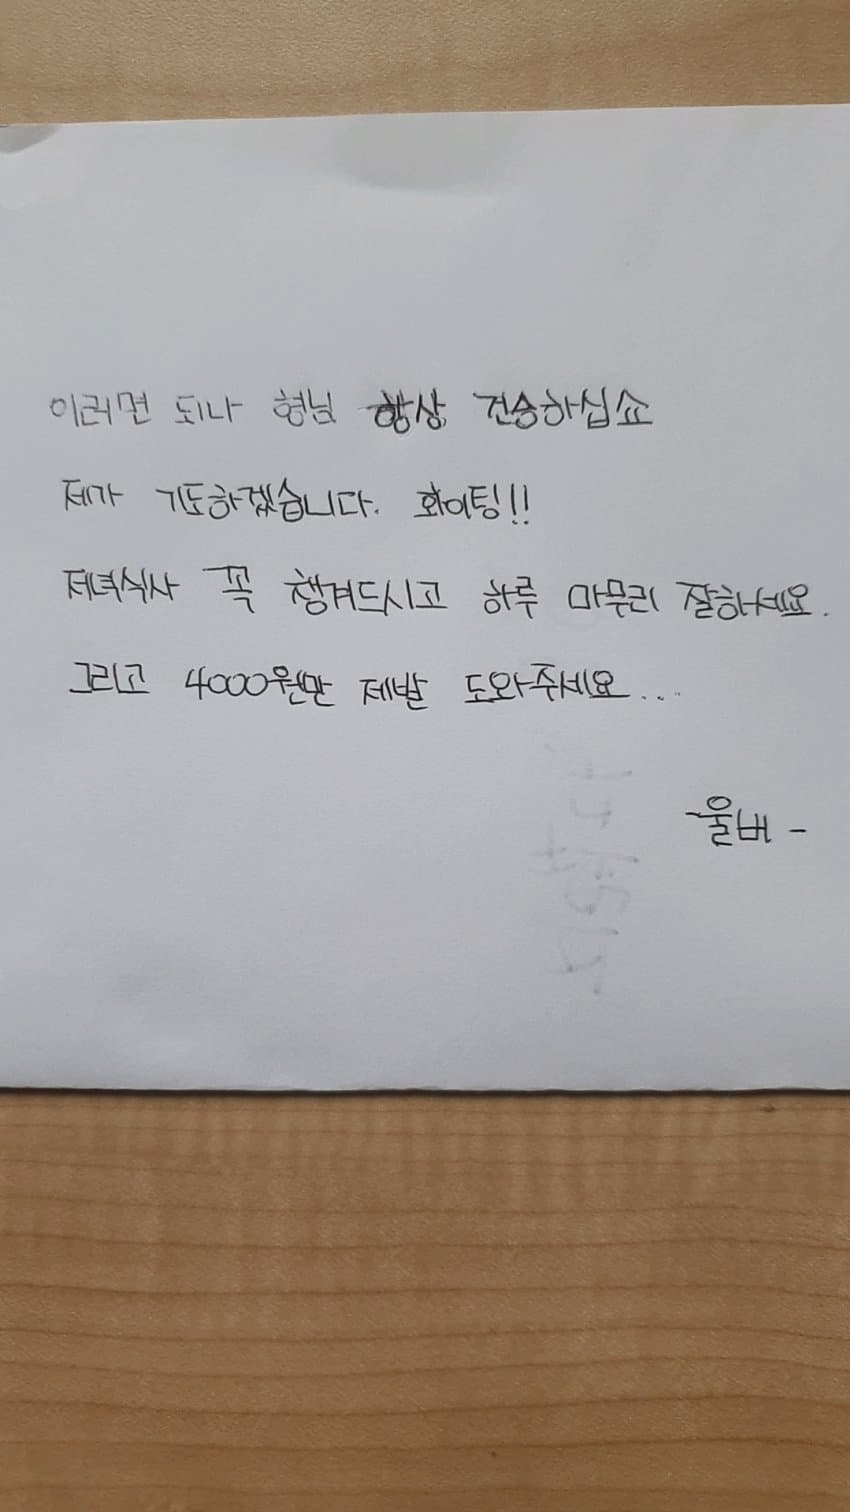 이러면 되나 형님 항상 건승하십쇼
제가 기도하겠습니다. 화이팅!!
저녁식사 꼭 챙겨드시고 하루 마무리 잘하세요.
그리고 4000원만 제발 도와주세요...
-울버-